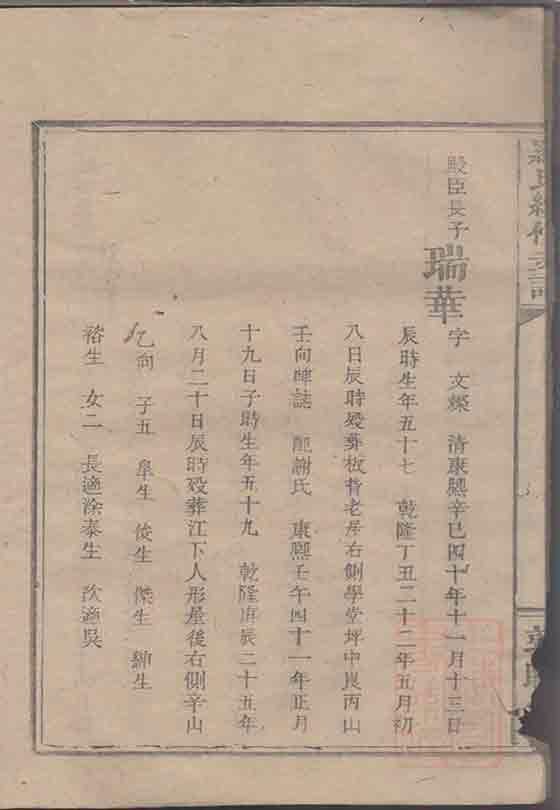 殿臣長子
瑞華
字 文燦 清康熙辛巳四十年十一月十三日
辰時生年五十七 乾隆丁丑二十二年五月初
八日辰時歿葬板背老屋右側學堂坪中艮丙山
壬向碑誌 配謝氏 康熙壬午四十一年正月
十九日子時生年五十九 乾隆庚辰二十五年
八月二十日辰時歿葬江下人形屋後右側辛山
乙向 子五 皐生 俊生 傑生 紳生
裕生 女二 長適涂泰生 次適吳